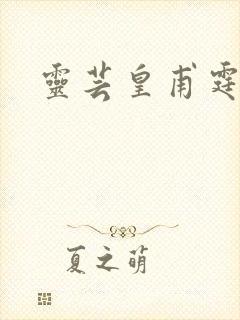 靈芸皇甫霆
夏之萌